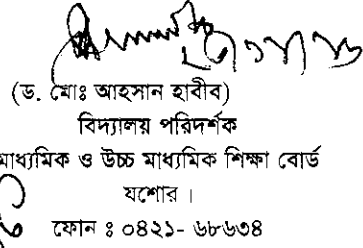 (ড. মোঃ আহসান হাবীব)
বিদ্যালয় পরিদর্শক
মাধ্যমিক ও উচ্চ মাধ্যমিক শিক্ষা বোর্ড
যশোর ।
ফোন ঃ ০৪২১- ৬৮৬৩৪